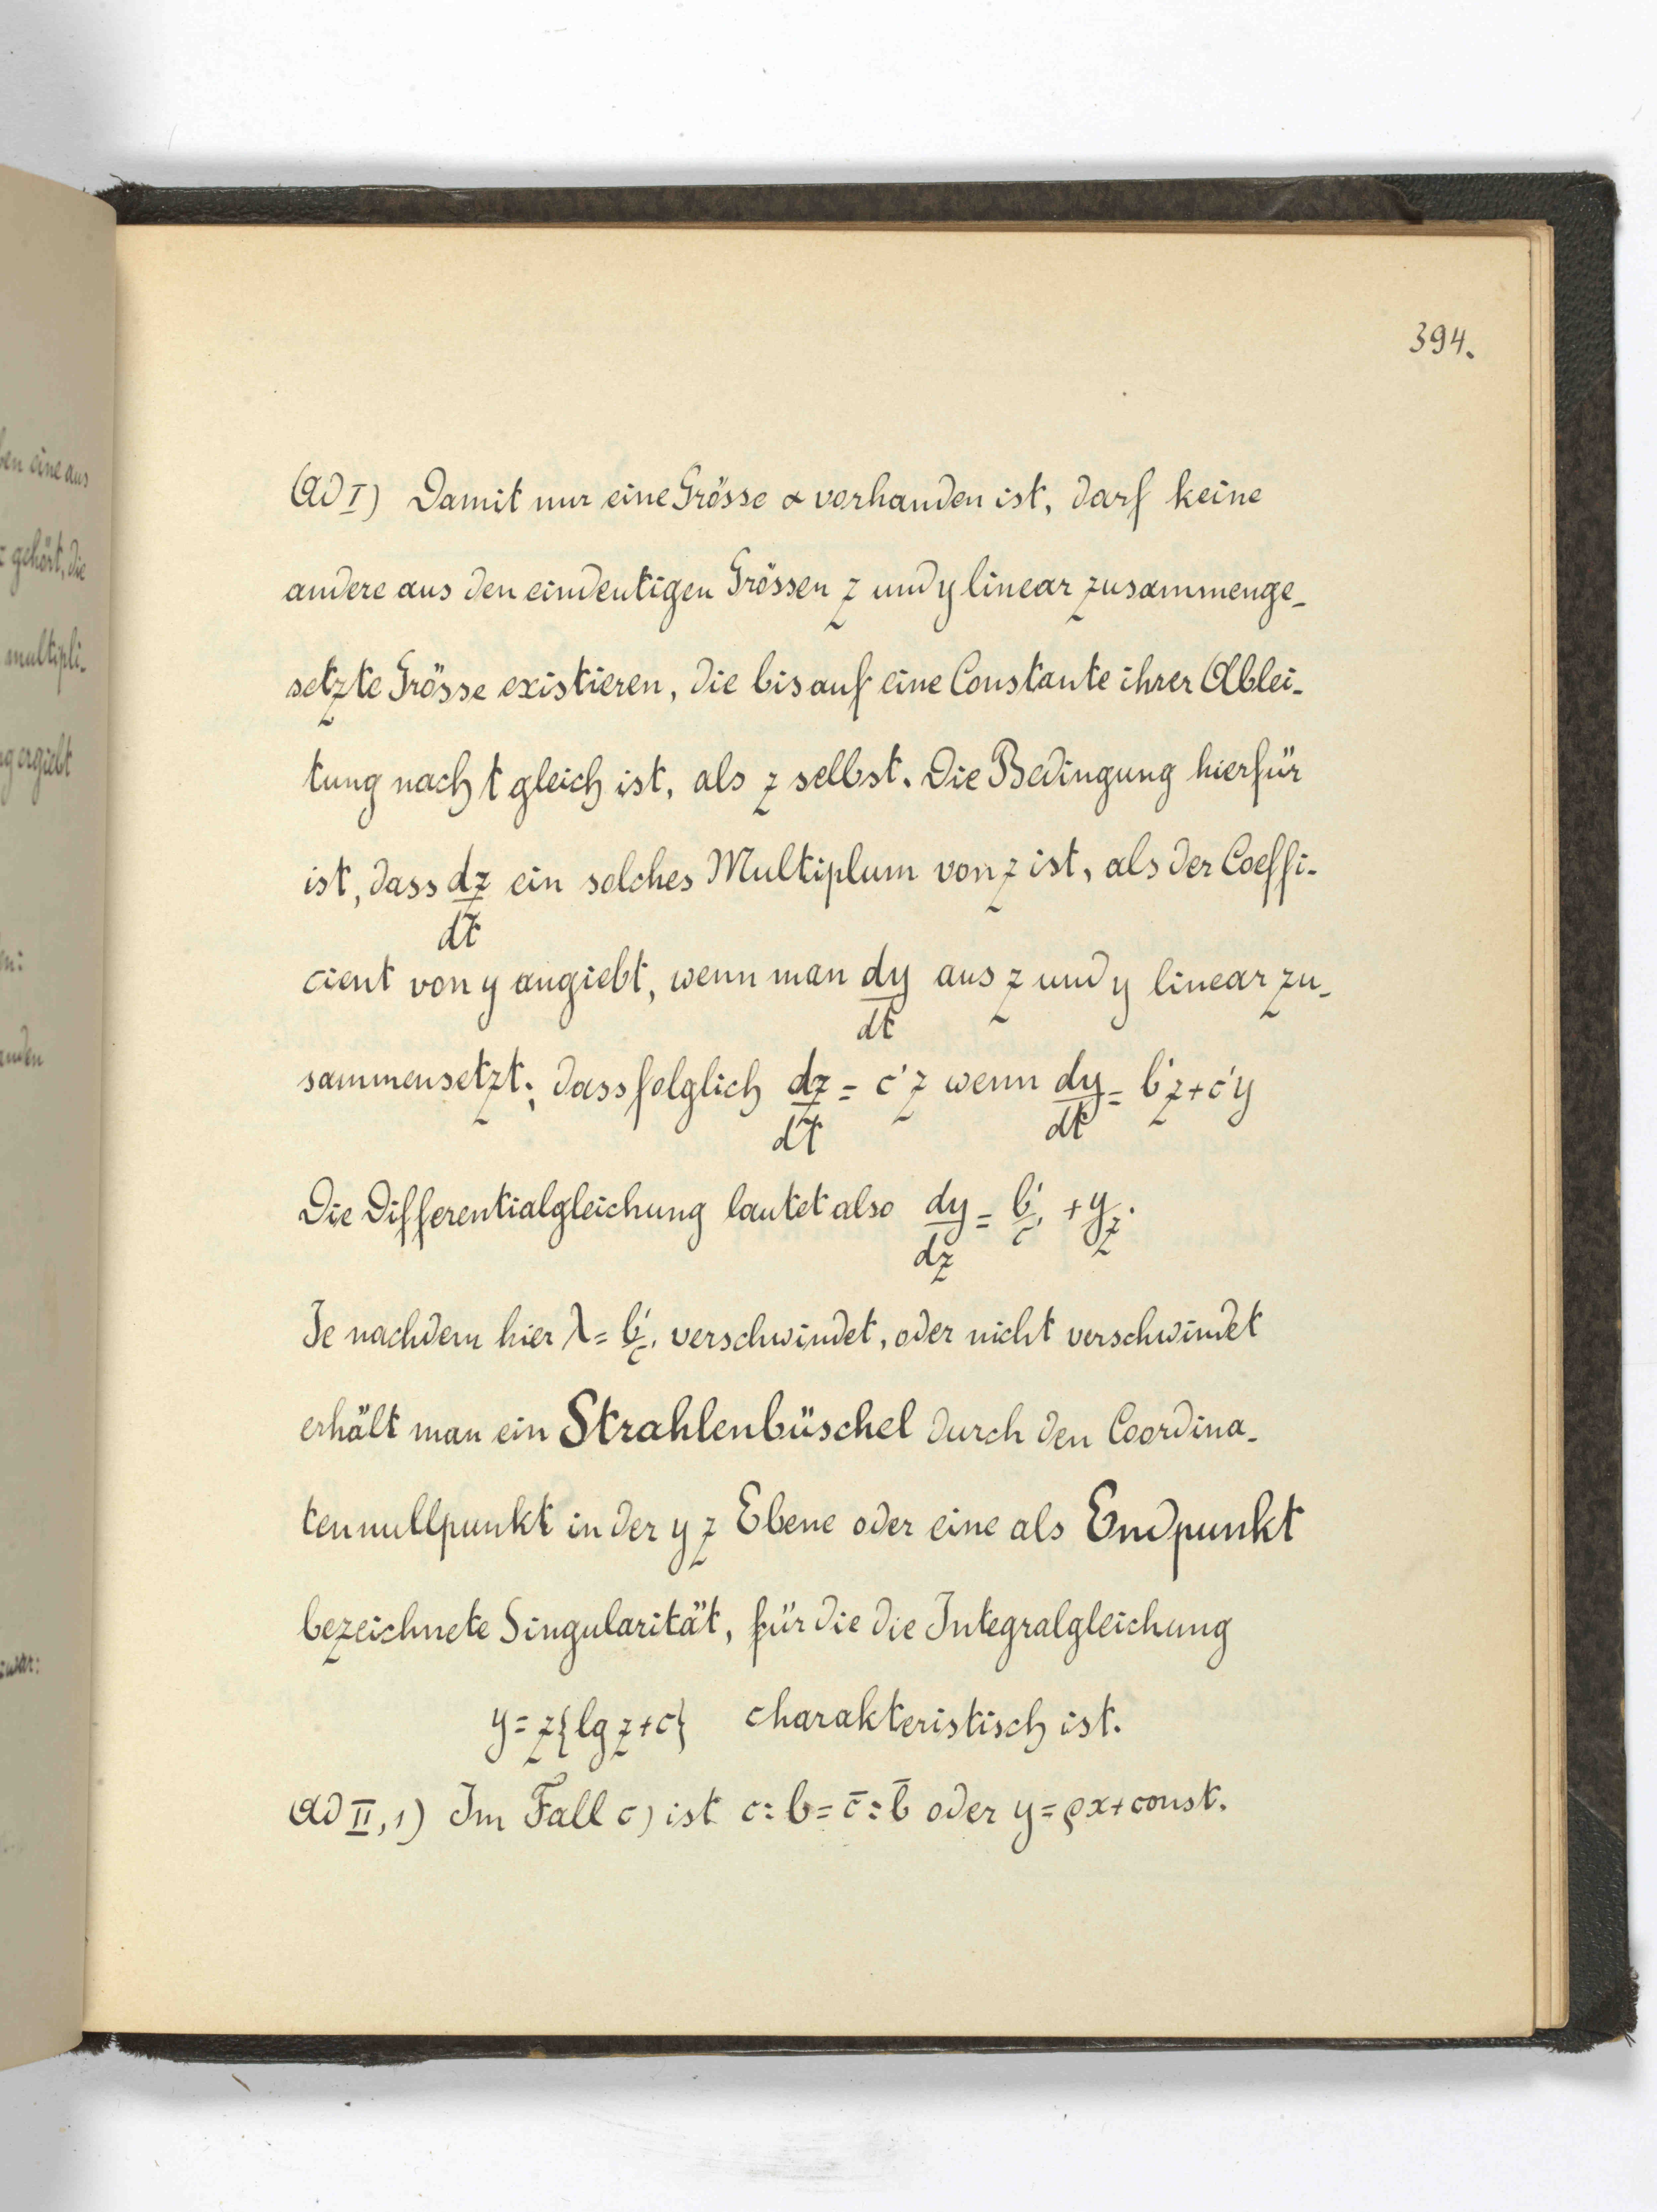 394.
ben eine aus
gehört, die
multipli-
g ergiebt
n:
anden
zwar:
(Ad I) Damit nur eine Grösse α vorhanden ist, darf keine
andere aus den eindeutigen Grössen z und y linear zusammenge-
setzte Grösse existieren, die bis auf eine Constante ihrer Ablei-
tung nach t gleich ist, als z selbst. Die Bedingung hierfür
ist, dass dz/dt ein solches Multiplum von z ist, als der Coeffi-
cient von y angiebt, wenn man dy/dt aus z und y linear zu-
sammensetzt; dass folglich dz/dt = c'z wenn dy/dt = b'z + c'y
Die Differentialgleichung lautet also dy/dz = b'/c' + y/z.
Je nachdem hier λ = b'/c' verschwindet, oder nicht verschwindet
erhält man ein Strahlenbüschel durch den Coordina-
tennullpunkt in der y z Ebene oder eine als Endpunkt
bezeichnete Singularität, für die die Integralgleichung
y = z{lg z + c} charakteristisch ist.
Ad II, 1) Im Fall c) ist c : b = c̄ : b̄ oder y = ρx + const.